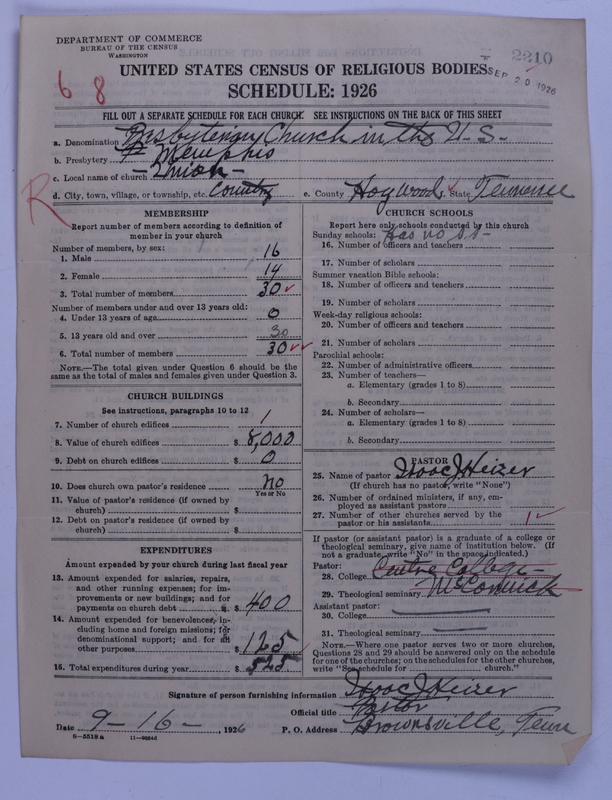 DEPARTMENT OF COMMERCE
BUREAU OF THE CENSUS
WASHINGTON
2210
SEP 20 1926
68
UNITED STATES CENSUS OF RELIGIOUS BODIES
SCHEDULE: 1926
FILL OUT A SEPARATE SCHEDULE FOR EACH CHURCH. SEE INSTRUCTIONS ON THE BACK OF THIS SHEET
a. Denomination Presbyterian Church in the U.S.
b. Presbytery Memphis
c. Local name of church - Union -
R
d. City, town, village, or township, etc. Country e. County Haywood f. State Tennessee
MEMBERSHIP
Report number of members according to definition of member in your church
Number of members, by sex:
1. Male 16
2. Female 14
3. Total number of members 30
Number of members under and over 13 years old:
4. Under 13 years of age 0
5. 13 years old and over 30
6. Total number of members 30
NOTE.—The total given under Question 6 should be the
same as the total of males and females given under Question 3.
CHURCH BUILDINGS
See instructions, paragraphs 10 to 12
7. Number of church edifices 1
8. Value of church edifices $ 8,000
9. Debt on church edifices $ 0
10. Does church own pastor's residence no
Yes or No
11. Value of pastor's residence (if owned by
church) $
12. Debt on pastor's residence (if owned by
church) $
EXPENDITURES
Amount expended by your church during last fiscal year
13. Amount expended for salaries, repairs,
and other running expenses; for im-
provements or new buildings; and for
payments on church debt $ 400
14. Amount expended for benevolences, in-
cluding home and foreign missions; for
denominational support; and for all
other purposes $ 125
15. Total expenditures during year $ 525
CHURCH SCHOOLS
Report here only schools conducted by this church
Sunday schools: Has no S.S.
16. Number of officers and teachers
17. Number of scholars
Summer vacation Bible schools:
18. Number of officers and teachers
19. Number of scholars
Week-day religious schools:
20. Number of officers and teachers
21. Number of scholars
Parochial schools:
22. Number of administrative officers
23. Number of teachers—
a. Elementary (grades 1 to 8)
b. Secondary
24. Number of scholars—
a. Elementary (grades 1 to 8)
b. Secondary
PASTOR
25. Name of pastor Isaac J Heizer
(If church has no pastor, write "None")
26. Number of ordained ministers, if any, em-
ployed as assistant pastors
27. Number of other churches served by the
pastor or his assistants 1
If pastor (or assistant pastor) is a graduate of a college or
theological seminary, give name of institution below. (If
not a graduate, write "No" in the space indicated.)
Pastor:
28. College Centre College
29. Theological seminary McCormick
Assistant pastor:
30. College
31. Theological seminary
NOTE.—Where one pastor serves two or more churches,
Questions 28 and 29 should be answered only on the schedule
for one of the churches; on the schedules for the other churches,
write "See schedule for church."
Signature of person furnishing information Isaac J Heizer
Official title Pastor
Date 9-16-, 1926 P. O. Address Brownsville, Tenn
8—5518a